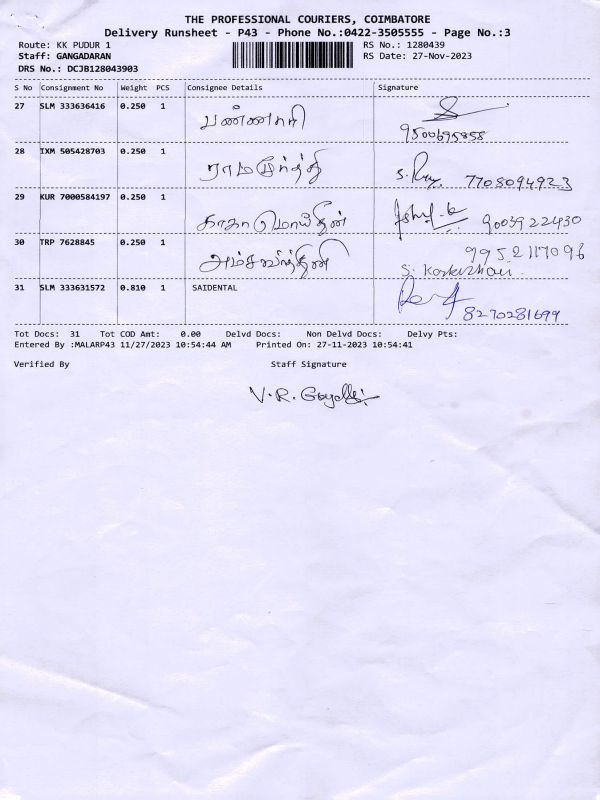 THE PROFESSIONAL COURIERS, COIMBATORE
Delivery Runsheet - P43 - Phone No.:0422-3505555 - Page No.:3
Route: KK PUDUR 1 RS No.: 1280439
Staff: GANGADARAN RS Date: 27-Nov-2023
DRS No.: DCJB128043903
S No Consignment No Weight PCS Consignee Details Signature
27 SLM 333636416 0.250 1 பண்ணாரி
28 IXM 505428703 0.250 1 ராமமூர்த்தி 7708094923
29 KUR 7000584197 0.250 1 காதர் மொய்தீன் 9003922430
30 TRP 7628845 0.250 1 9952117096
31 SLM 333631572 0.810 1 SAIDENTAL 8270281699
Tot Docs: 31 Tot COD Amt: 0.00 Delvd Docs: Non Delvd Docs: Delvy Pts:
Entered By :MALARP43 11/27/2023 10:54:44 AM Printed On: 27-11-2023 10:54:41
Verified By Staff Signature
V.R.